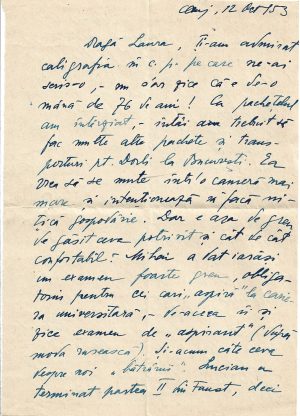 Cluj, 12 Oct 53
Dragă Laura, Ți-am admirat
caligrafia în c. p. pe care ne-ai
scris-o, - nu s'ar zice că e de-o
mână de 76 de ani! Cu pachetul
am întârziat, - întâi am trebuit să
fac multe alte pachete și trans-
porturi pt. Dorli la București. Ea
vrea să se mute într'o cameră mai
mare și intenționează să facă mi-
tică gospodărie. Dar e așa de greu
de găsit ceva potrivit și cât de cât
confortabil! Mihai a dat iarăși
un examen foarte greu, obliga-
toriu pentru cei cari „aspiră" la carie-
ra universitară, - de-aceea îi și
zice examen de „aspirant" (după
moda rusească). Și-acum câte ceva
despre noi „bătrânii" Lucian a
terminat partea II din Faust, deci